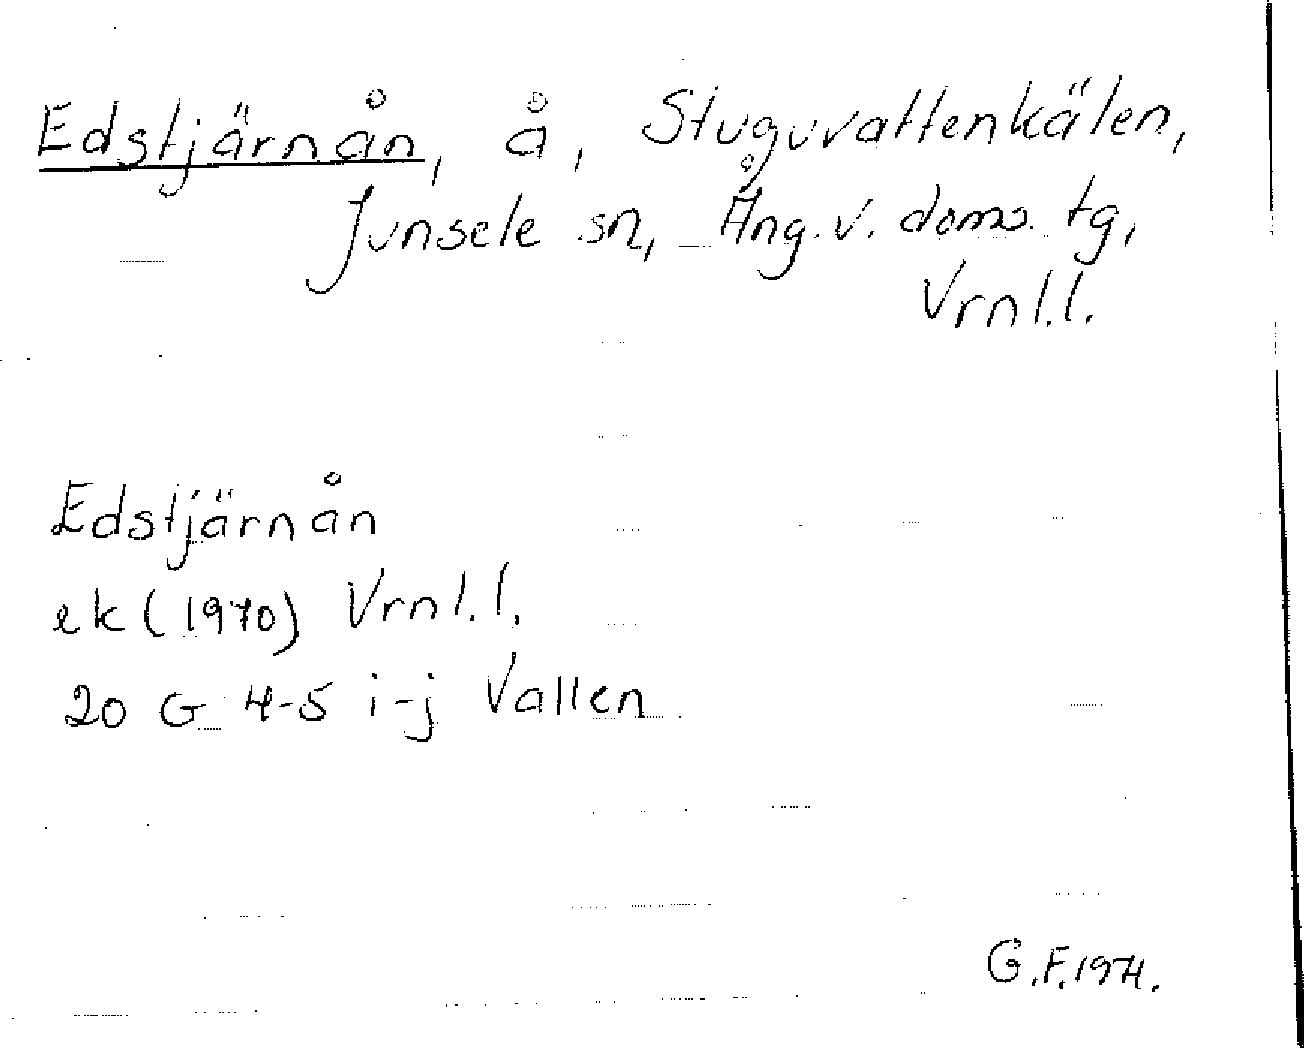 Edstjärnån, å, Stuguvattenkälen,
Junsele sn, Ång. v. doms. tg,
Vrnl. l.
Edstjärnån
ek (1970) Vrnl. l.
20 G 4-5 i-j Vallen
G.F. 1974.